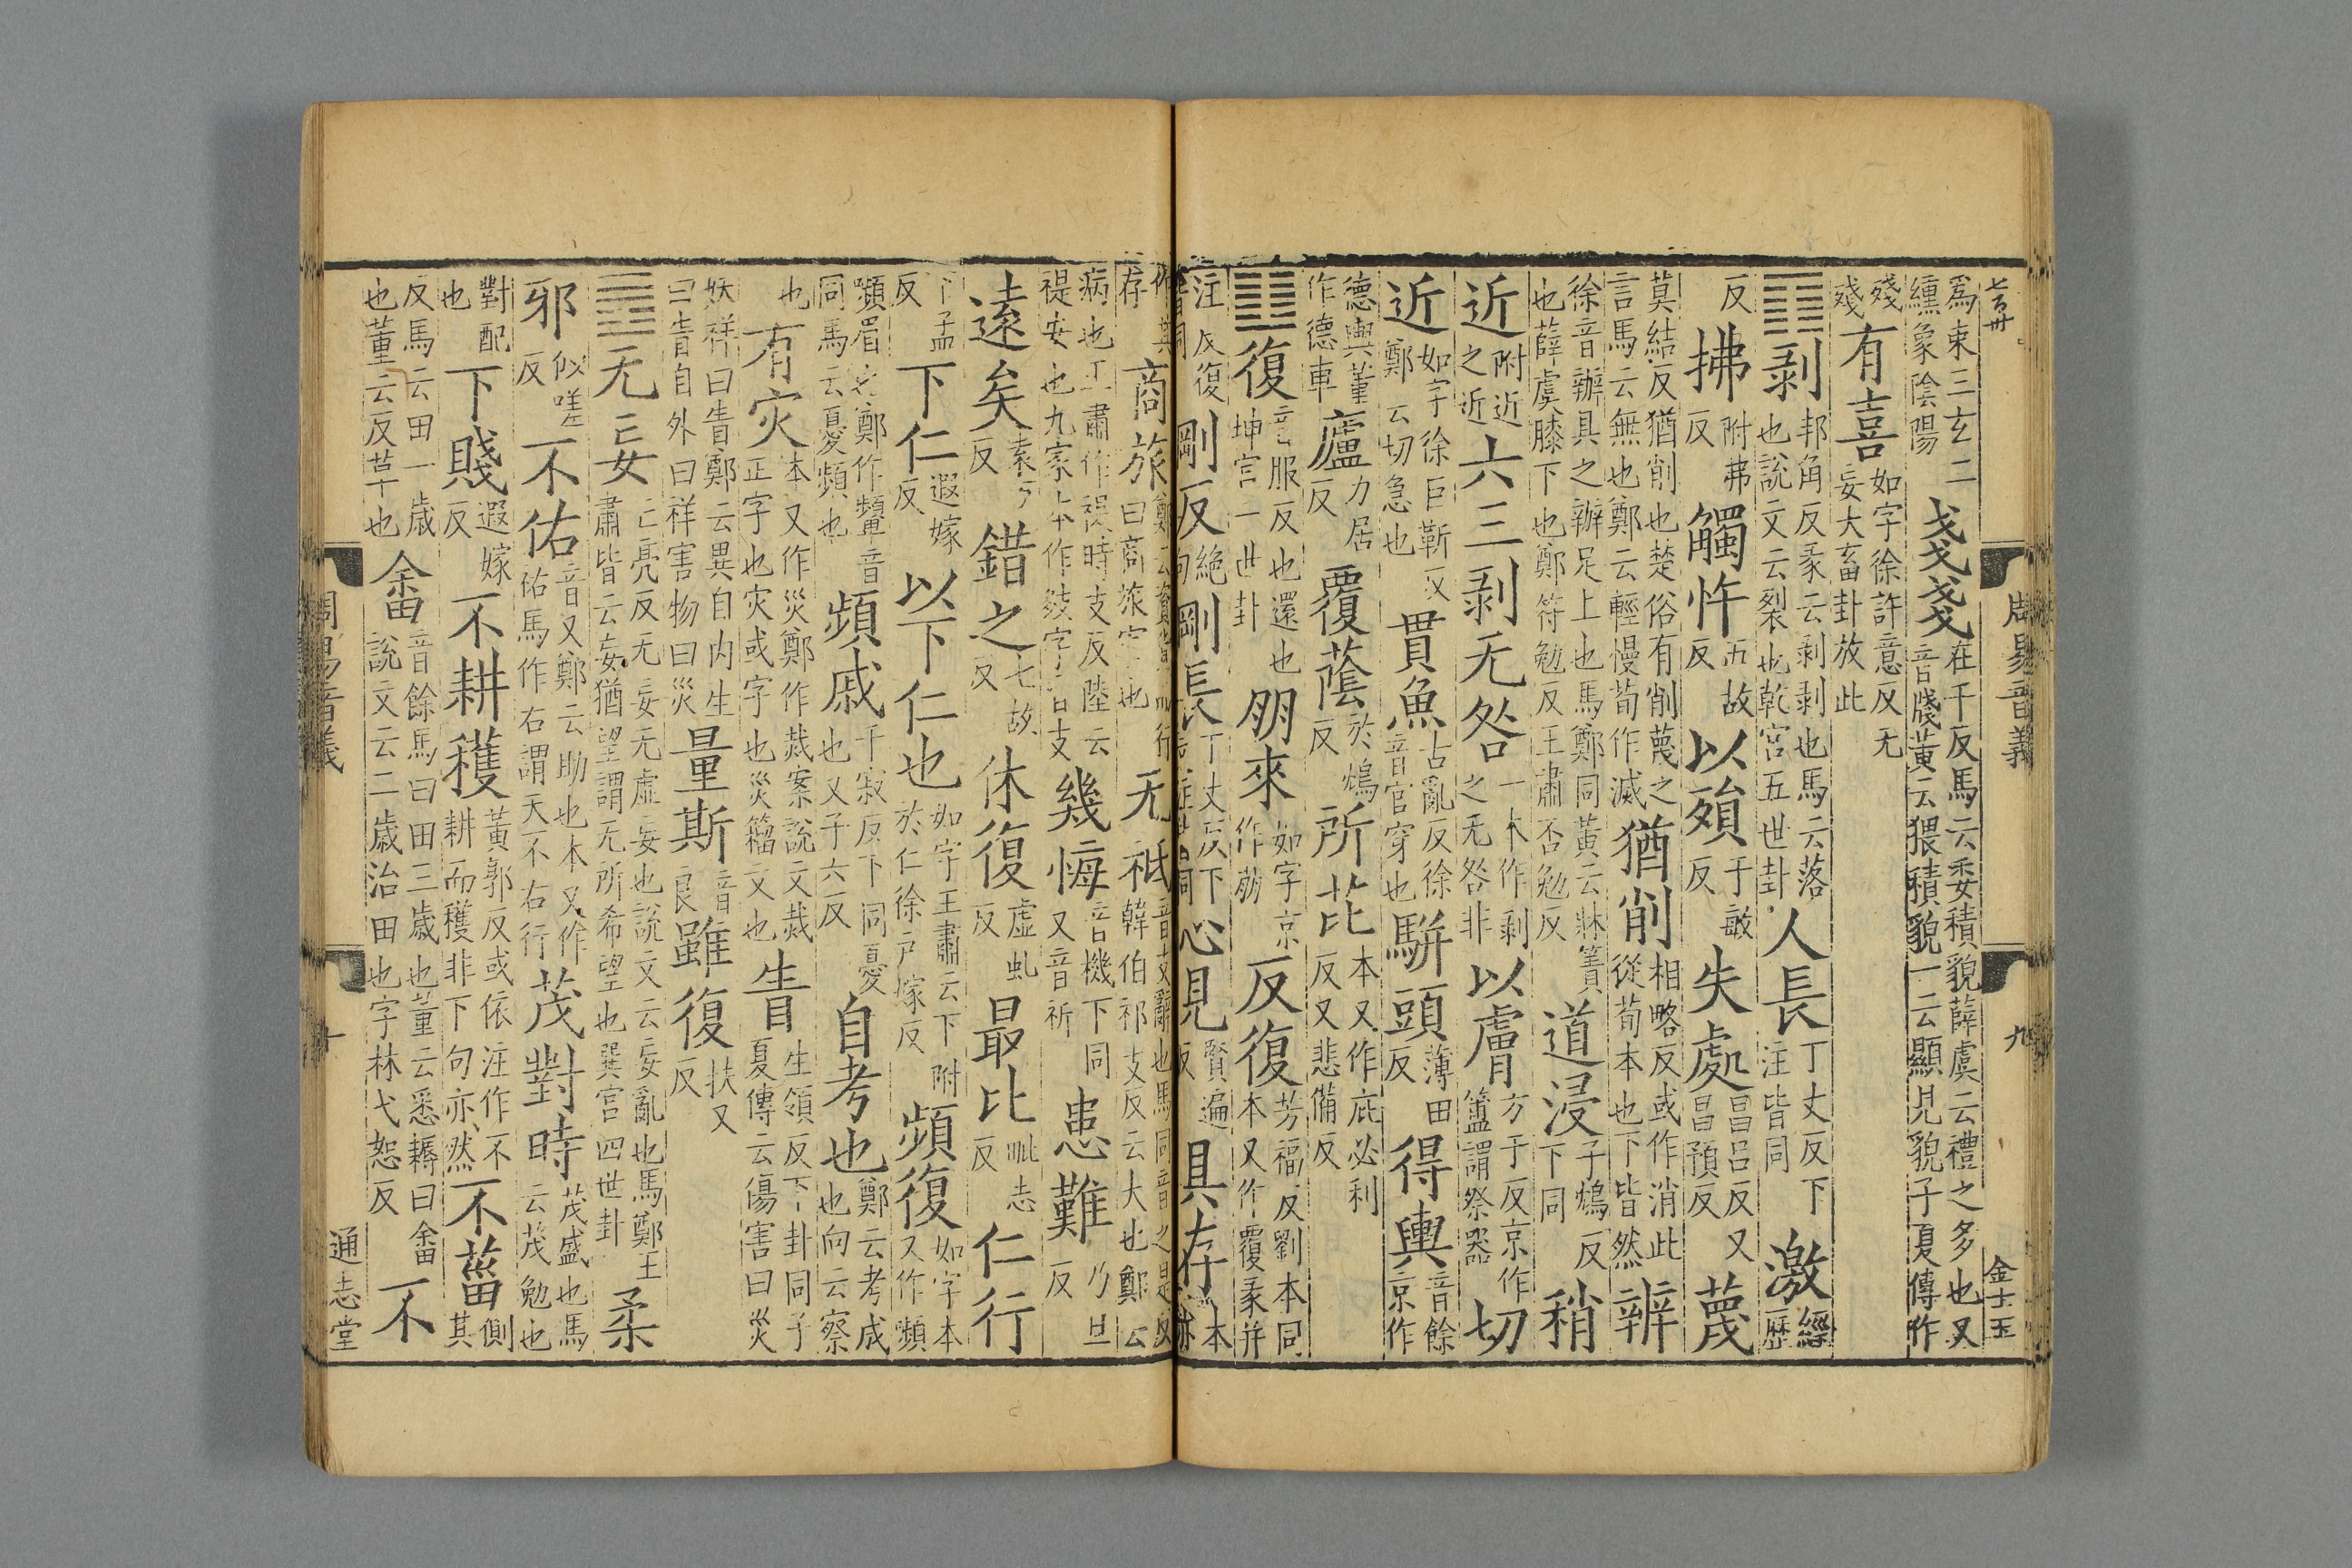 七百卅
周易音義 九 金士玉
爲束三玄二纁象陰陽戔戔在千反馬云委積貌薛虞云禮之多也又音牋黃云猥積貌一云顯見貌子夏傳作
殘殘有喜如字徐許意反无妄大畜卦放此
䷖剥邦角反彖云剥剥也馬云落也說文云裂也乾宮五世卦人長丁丈反下注皆同激經歷
反拂附弗反觸忤五故反以殞于敏反失處昌呂反又昌預反蔑
莫結反猶削也楚俗有削蔑之言馬云無也鄭云輕慢荀作滅猶削相略反或作消此從荀本也下皆然辨
徐音辦具之辦足上也馬鄭同黃云牀簀也薛虞膝下也鄭符勉反王肅否勉反道浸子鴆反下同稍
近附近之近六三剥无咎一本作剥之无咎非以膚方于反京作簠謂祭器切
近如字徐巨靳反鄭云切急也貫魚古亂反徐音官穿也駢頭薄田反得輿音餘京作
德輿董作德車廬力居反覆蔭於鴆反所芘本又作庇必利反又悲備反
䷗復音服反也還也坤宮一世卦朋來如字京作崩反復芳福反劉本同本又作覆彖并
注反復皆同剛反絕句剛長丁丈反下同心見賢遍反具存本亦
作其存商旅鄭云資貨而行曰商旅客也无祗音支辭也馬同音之是反韓伯祁支反云大也鄭云
病也王肅作禔時支反陸云禔安也九家本作𢻫字音支幾悔音機下同又音祈患難乃旦反
遠矣袁万反錯之七故反休復虛虬反最比毗志反仁行
下孟反下仁遐嫁反以下仁也如字王肅云下附於仁徐戶嫁反頻復如字本又作嚬
嚬眉也鄭作顰音同馬云憂頻也頻戚千寂反下同憂也又子六反自考也鄭云考成也向云察
也有灾本又作災鄭作烖案說文烖正字也灾或字也災籀文也眚生領反下卦同子夏傳云傷害曰災
妖祥曰眚鄭云異自内生曰眚自外曰祥害物曰災量斯音良雖復扶又反
䷘无妄亡亮反无妄无虛妄也說文云妄亂也馬鄭王肅皆云妄猶望謂无所希望也巽宮四世卦柔
邪似嗟反不佑音又鄭云助也本又作祐馬作右謂天不右行茂對時茂盛也馬云茂勉也
對配也下賤遐嫁反不耕穫黃郭反或依注作不耕而穫非下句亦然不菑側其
反馬云田一歲也董云反草也畬音餘馬曰田三歲也董云悉耨曰畬說文云二歲治田也字林弋恕反不
周易音義 十 通志堂